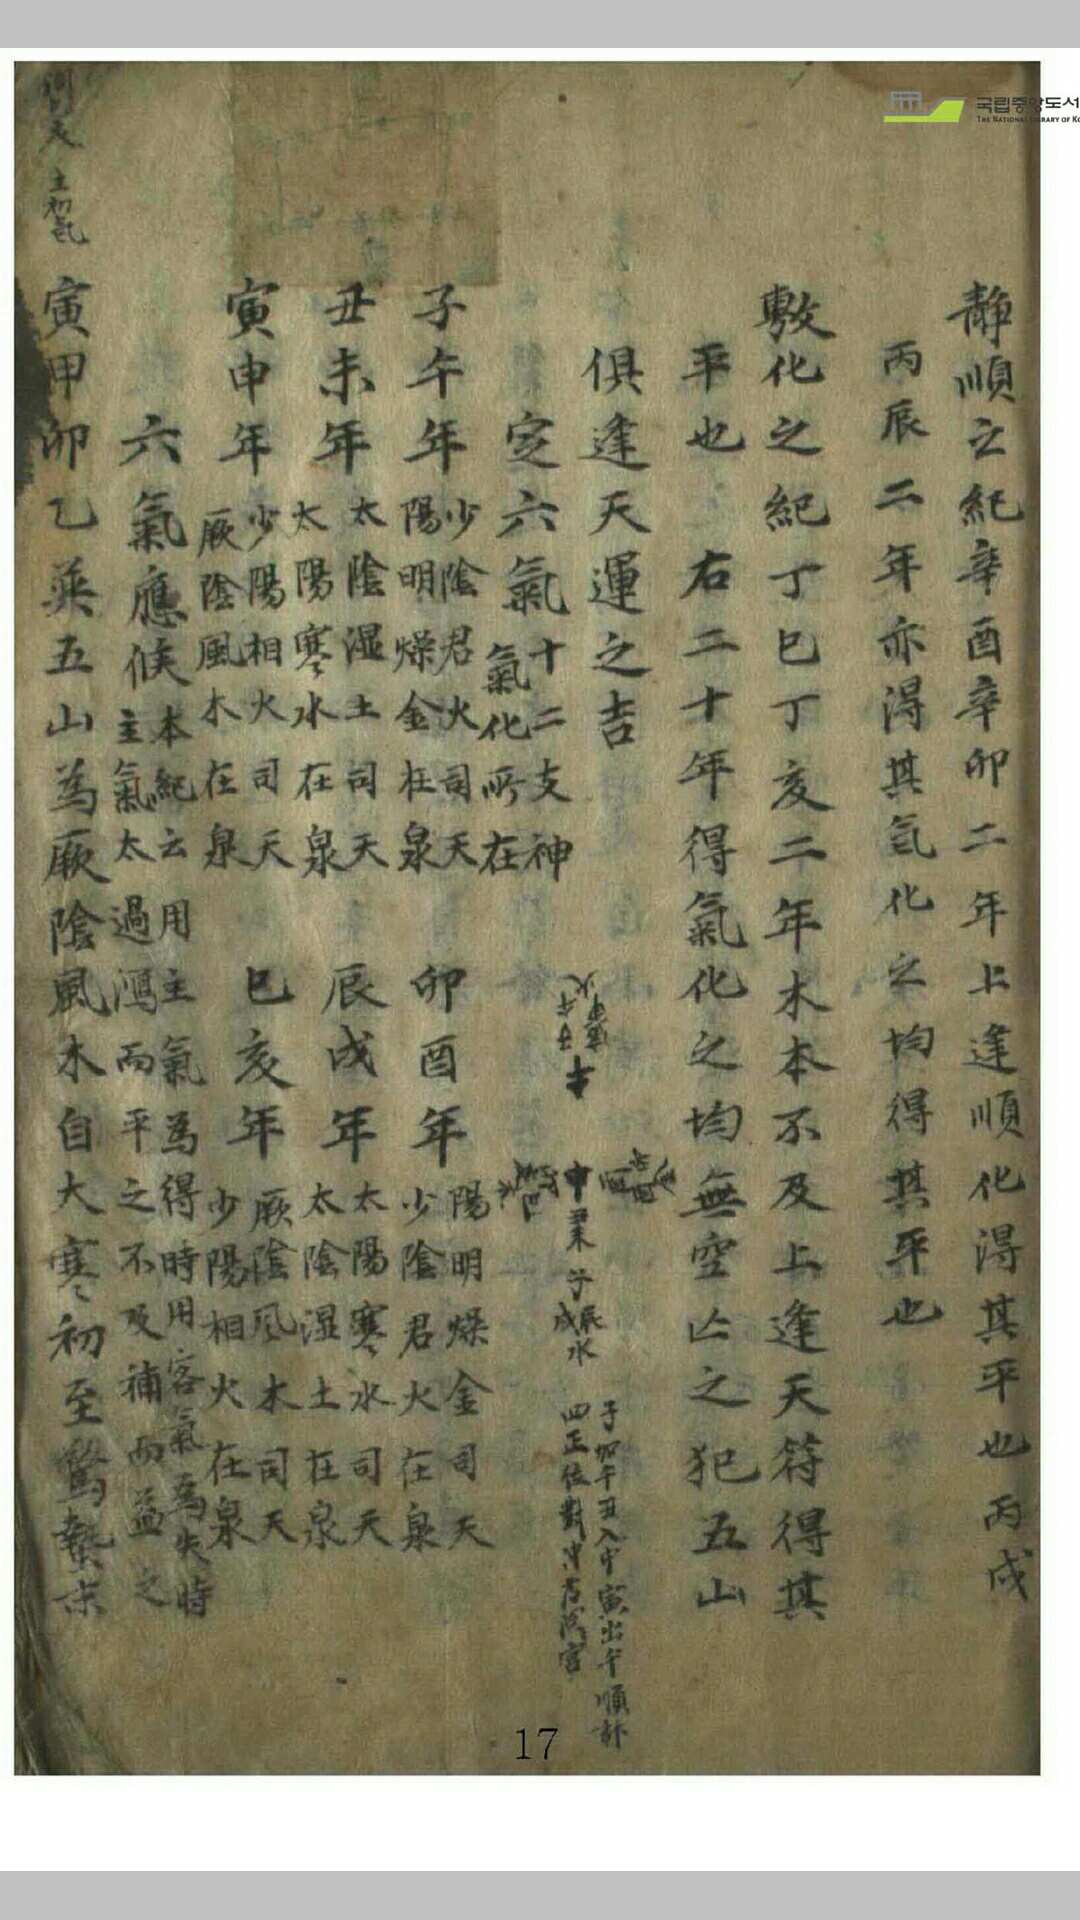 국립중앙도서
THE NATIONAL LIBRARY OF KO
靜順之紀辛酉辛卯二年上逢順化得其平也丙戌
丙辰二年亦得其氣化之均得其平也
敷化之紀丁巳丁亥二年木本不及上逢天符得其
平也 右二十年得氣化之均無空亡之犯五山
俱逢天運之吉
子加午丑入中寅出午順
四正位對冲
申 子辰水
定六氣 十二支神
氣化所在
子午年 少陰君火司天
陽明燥金在泉
卯酉年 陽明燥金司天
少陰君火在泉
丑未年 太陰湿土司天
太陽寒水在泉
辰戌年 太陽寒水司天
太陰湿土在泉
寅申年 少陽相火司天
厥陰風木在泉
巳亥年 厥陰風木司天
少陽相火在泉
六氣應候 本紀云用主氣為得時用客氣為失時
主氣太過瀉而平之不及補而益之
寅甲卯乙巽五山為厥陰風木自大寒初至驚蟄末
土初氣
17